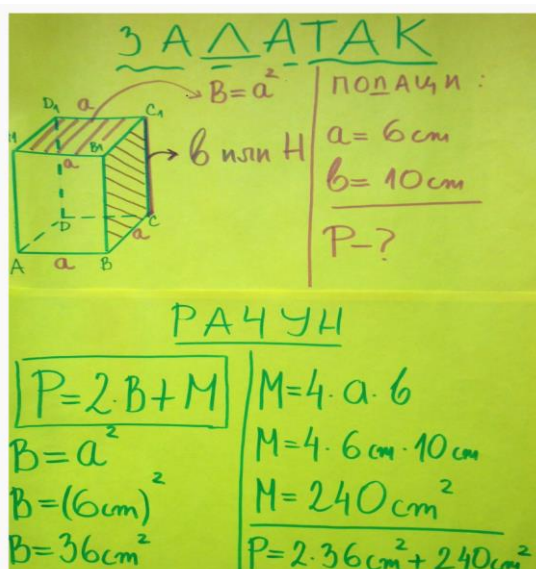 ЗАДАТАК
D₁ a C₁
B=a²
a B₁
в или H
D C
a
A a B
ПОДАЦИ:
a=6cm
в=10cm
P-?
РАЧУН
P=2·B+M
B=a²
B=(6cm)²
B=36cm²
M=4·a·в
M=4·6cm·10cm
M=240cm²
P=2·36cm²+240cm²